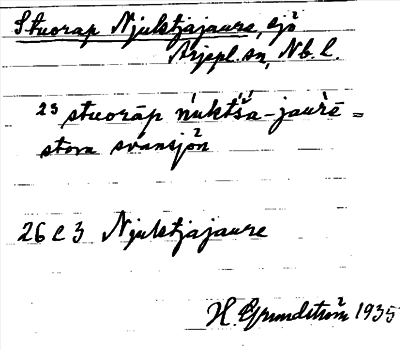 Stuorap Njuktjajaure, sjö
Arjepl. sn, Nb. l.
23 stuorāp ńuktša-jaurē =
stora svansjön
26 C 3 Njuktjajaure
H. Grundström 1935